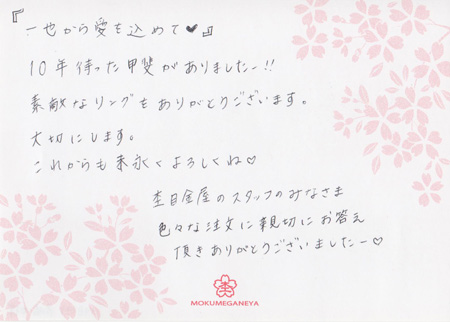 『一也から愛を込めて♥』
10年待った甲斐がありましたー!!
素敵なリングをありがとうございます。
大切にします。
これからも末永くよろしくね♡
杢目金屋のスタッフのみなさま
色々な注文に親切にお答え
頂きありがとうございましたー♡
MOKUMEGANEYA